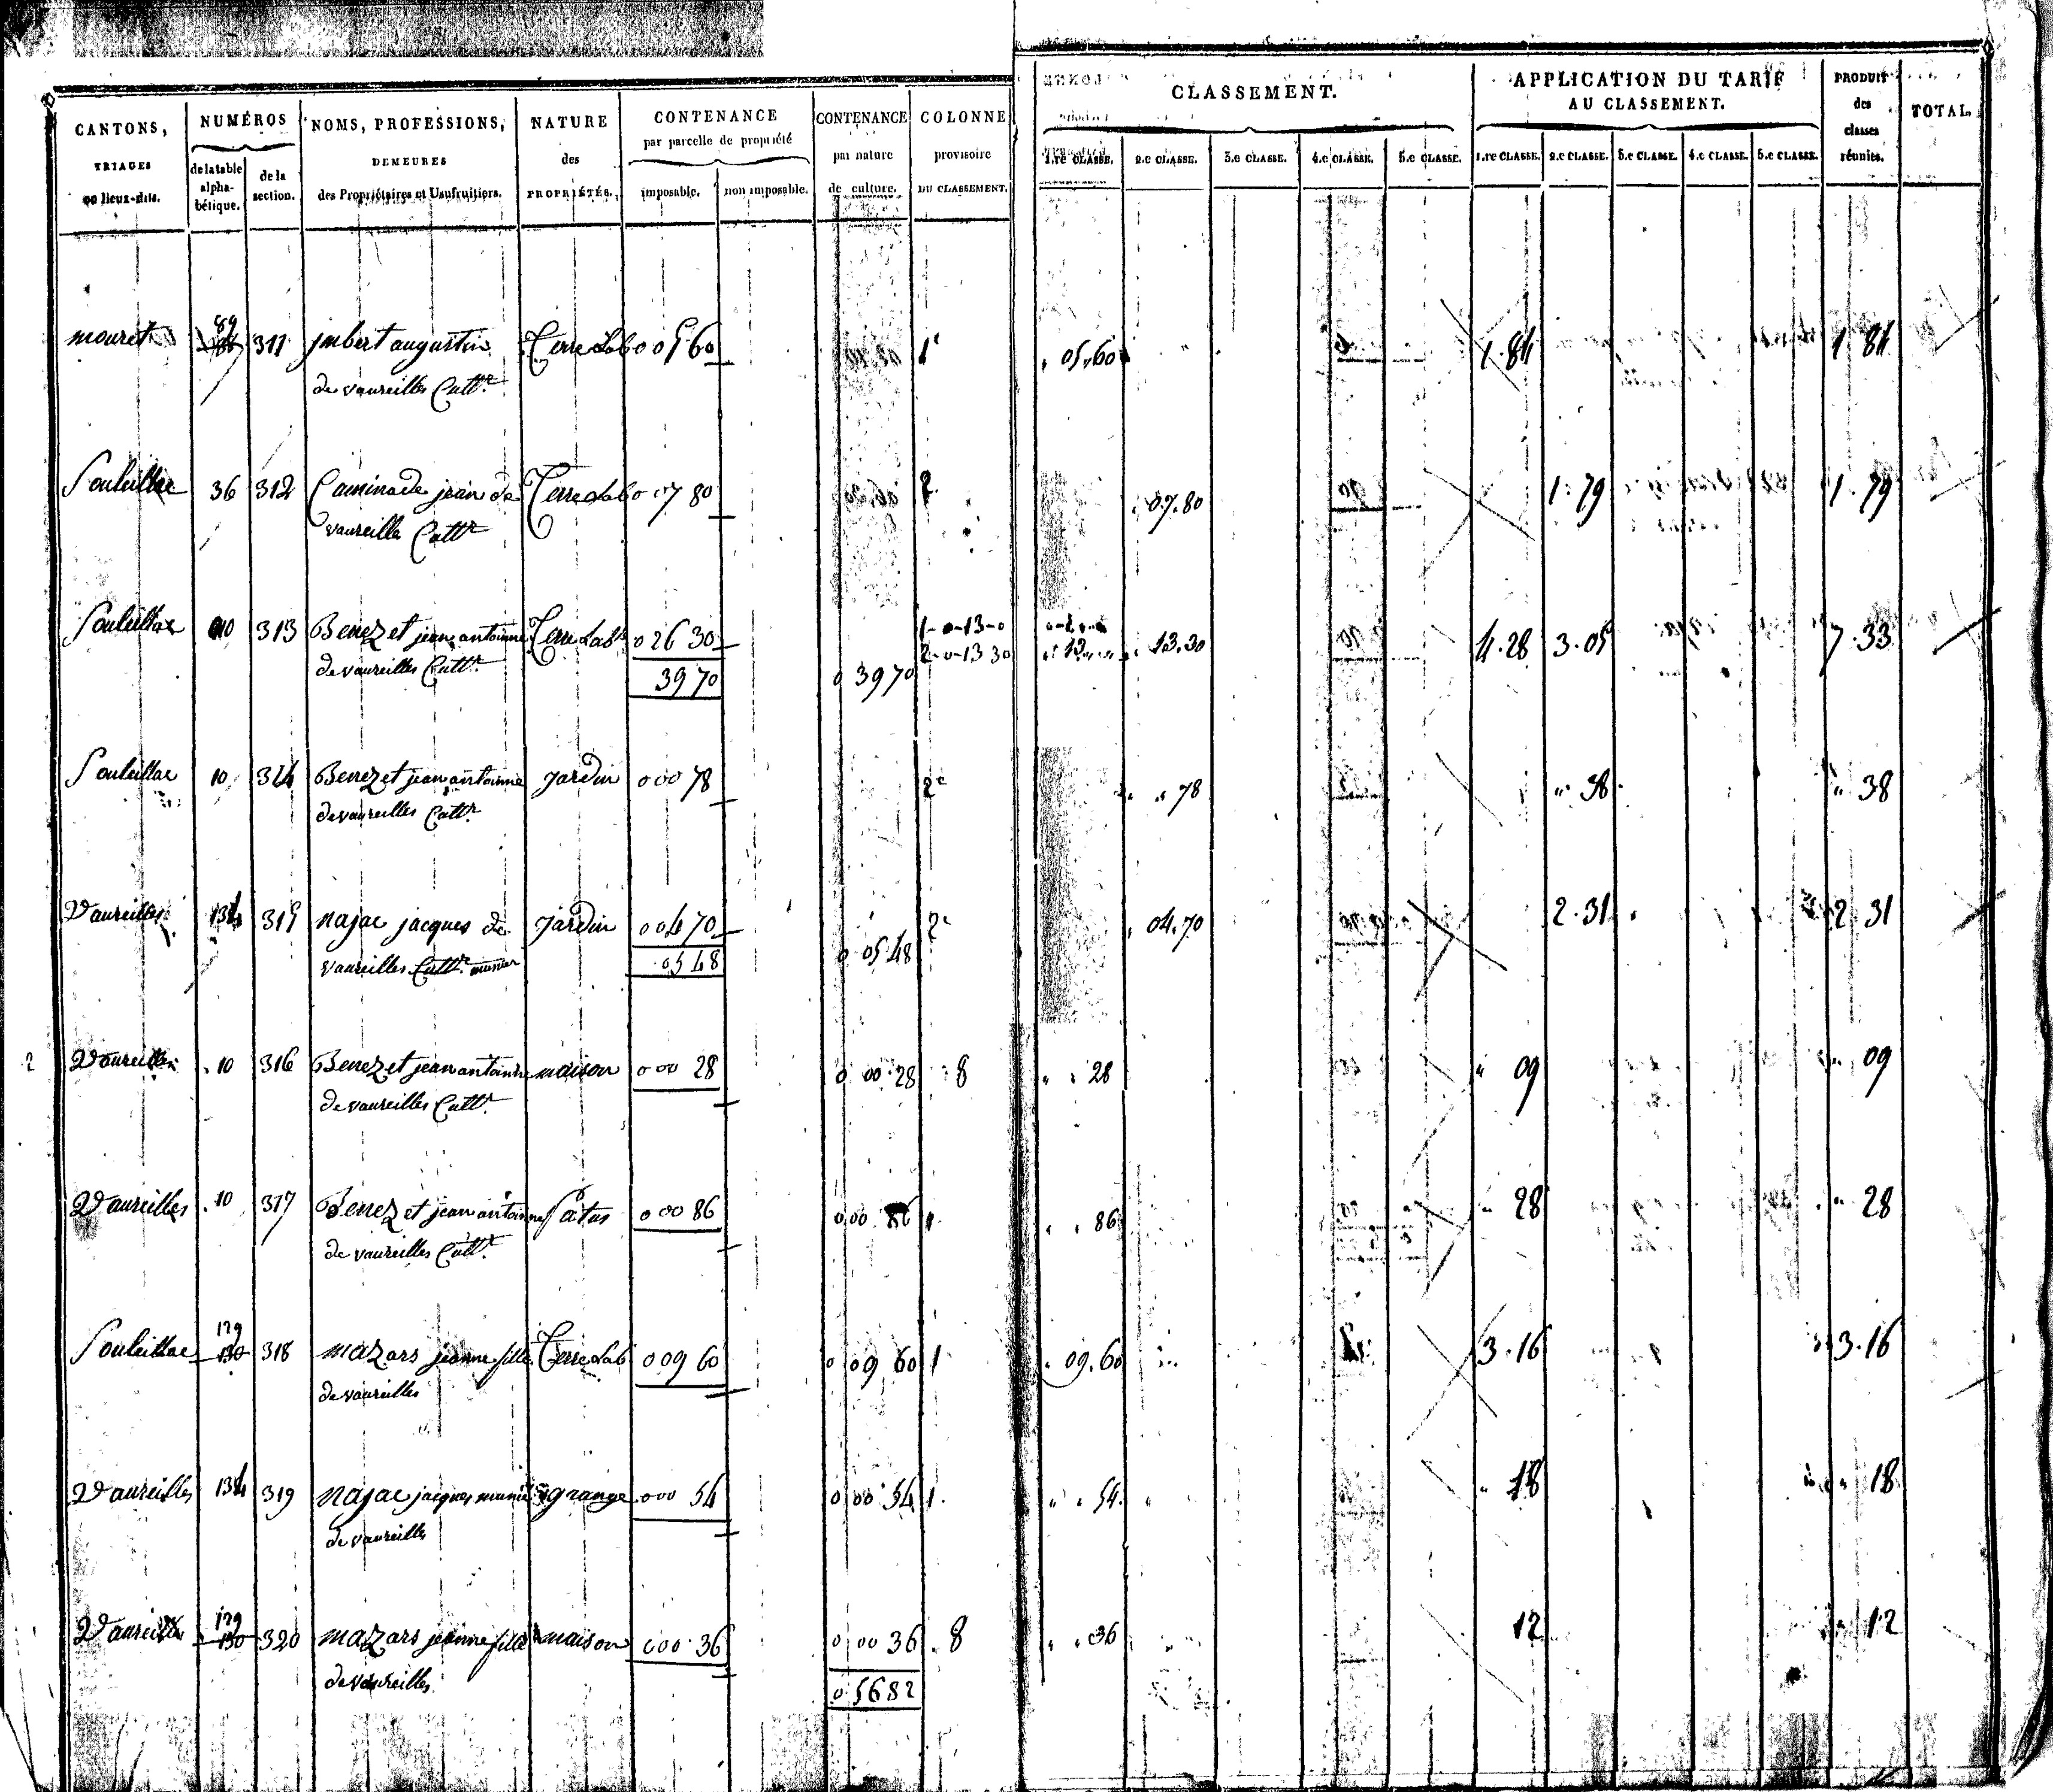 CANTONS, TRIAGES ou lieux-dits.
NUMÉROS
de la table alpha-bétique.
de la section.
NOMS, PROFESSIONS, DEMEURES des Propriétaires et Usufruitiers.
NATURE des PROPRIÉTÉS.
CONTENANCE par parcelle de propriété
imposable.
non imposable.
CONTENANCE par nature de culture.
COLONNE provisoire DU CLASSEMENT.
CLASSEMENT.
1.re CLASSE. 2.e CLASSE. 3.e CLASSE. 4.e CLASSE. 5.e CLASSE.
APPLICATION DU TARIF AU CLASSEMENT.
1.re CLASSE. 2.e CLASSE. 3.e CLASSE. 4.e CLASSE. 5.e CLASSE.
PRODUIT des classes réunies.
TOTAL.
mouret 89 311 jmbert augustin Terre Lab 0 05 60 1e 05.60 1.84 1 84
de vaureilles Cattr
Souleillac 36 312 Caminade jean de Terre Lab 0 07 80 2 07.80 1.79 1.79
vaureilles Cattr
Souleillac 10 313 Benezet jean antoinne Terre Labe 0 26 30 1-0-13-0 13 13.30 4.28 3.05 7.33
de vaureilles Cattr 2-0-13 30
39 70 0 39 70
Souleillac 10 314 Benezet jean antoinne Jardin 0 00 78 2e 78 38 38
de vaureilles Cattr
Vaureilles 134 315 najac jacques de Jardin 0 04 70 2e 04.70 2.31 2 31
vaureilles Cattr munier 05 48 0 05 48
Vaureilles 10 316 Benezet jean antoinne maison 0 00 28 0 00 28 8 28 09 09
de vaureilles Cattr
Vaureilles 10 317 Benezet jean antoinne Patus 0 00 86 0 00 86 1 86 28 28
de vaureilles Cattr
Souleillac 129 130 318 mazars jeanne fille Terre Lab 0 09 60 0 09 60 1 09.60 3.16 3.16
de vaureilles
Vaureilles 134 319 najac jacques munier grange 0 00 54 0 00 54 1. 54 18 18
de vaureilles
Vaureilles 129 130 320 mazars jeanne fille maison 0 00 36 0 00 36 8 36 12 12
de vaureilles
0 56 82